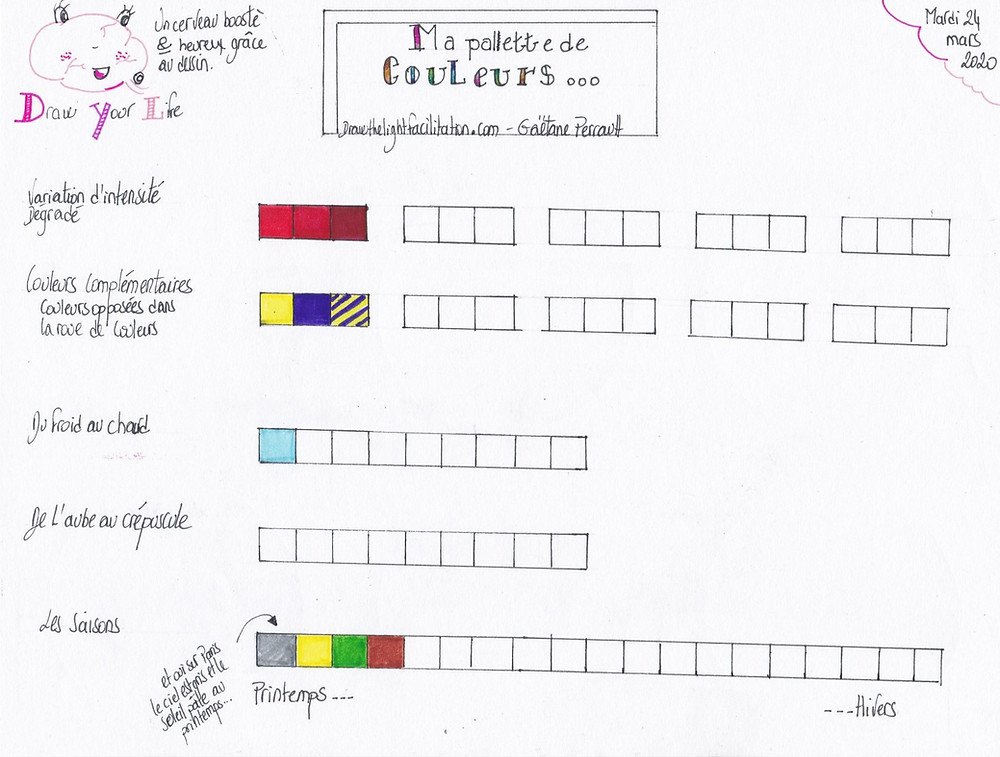 Un cerveau boosté
& heureux grâce
au dessin.
Draw Your Life
Ma pallette de
COULEURS...
Drawthelightfacilitation.com - Gaëtane Perrault
Mardi 24
mars
2020
Variation d'intensité
Dégradé
Couleurs complémentaires
Couleurs opposées dans
la roue de couleurs
Du froid au chaud
De l'aube au crépuscule
Les saisons
et oui sur Paris
le ciel est gris et le
soleil pâle au
printemps...
Printemps ---
---Hivers